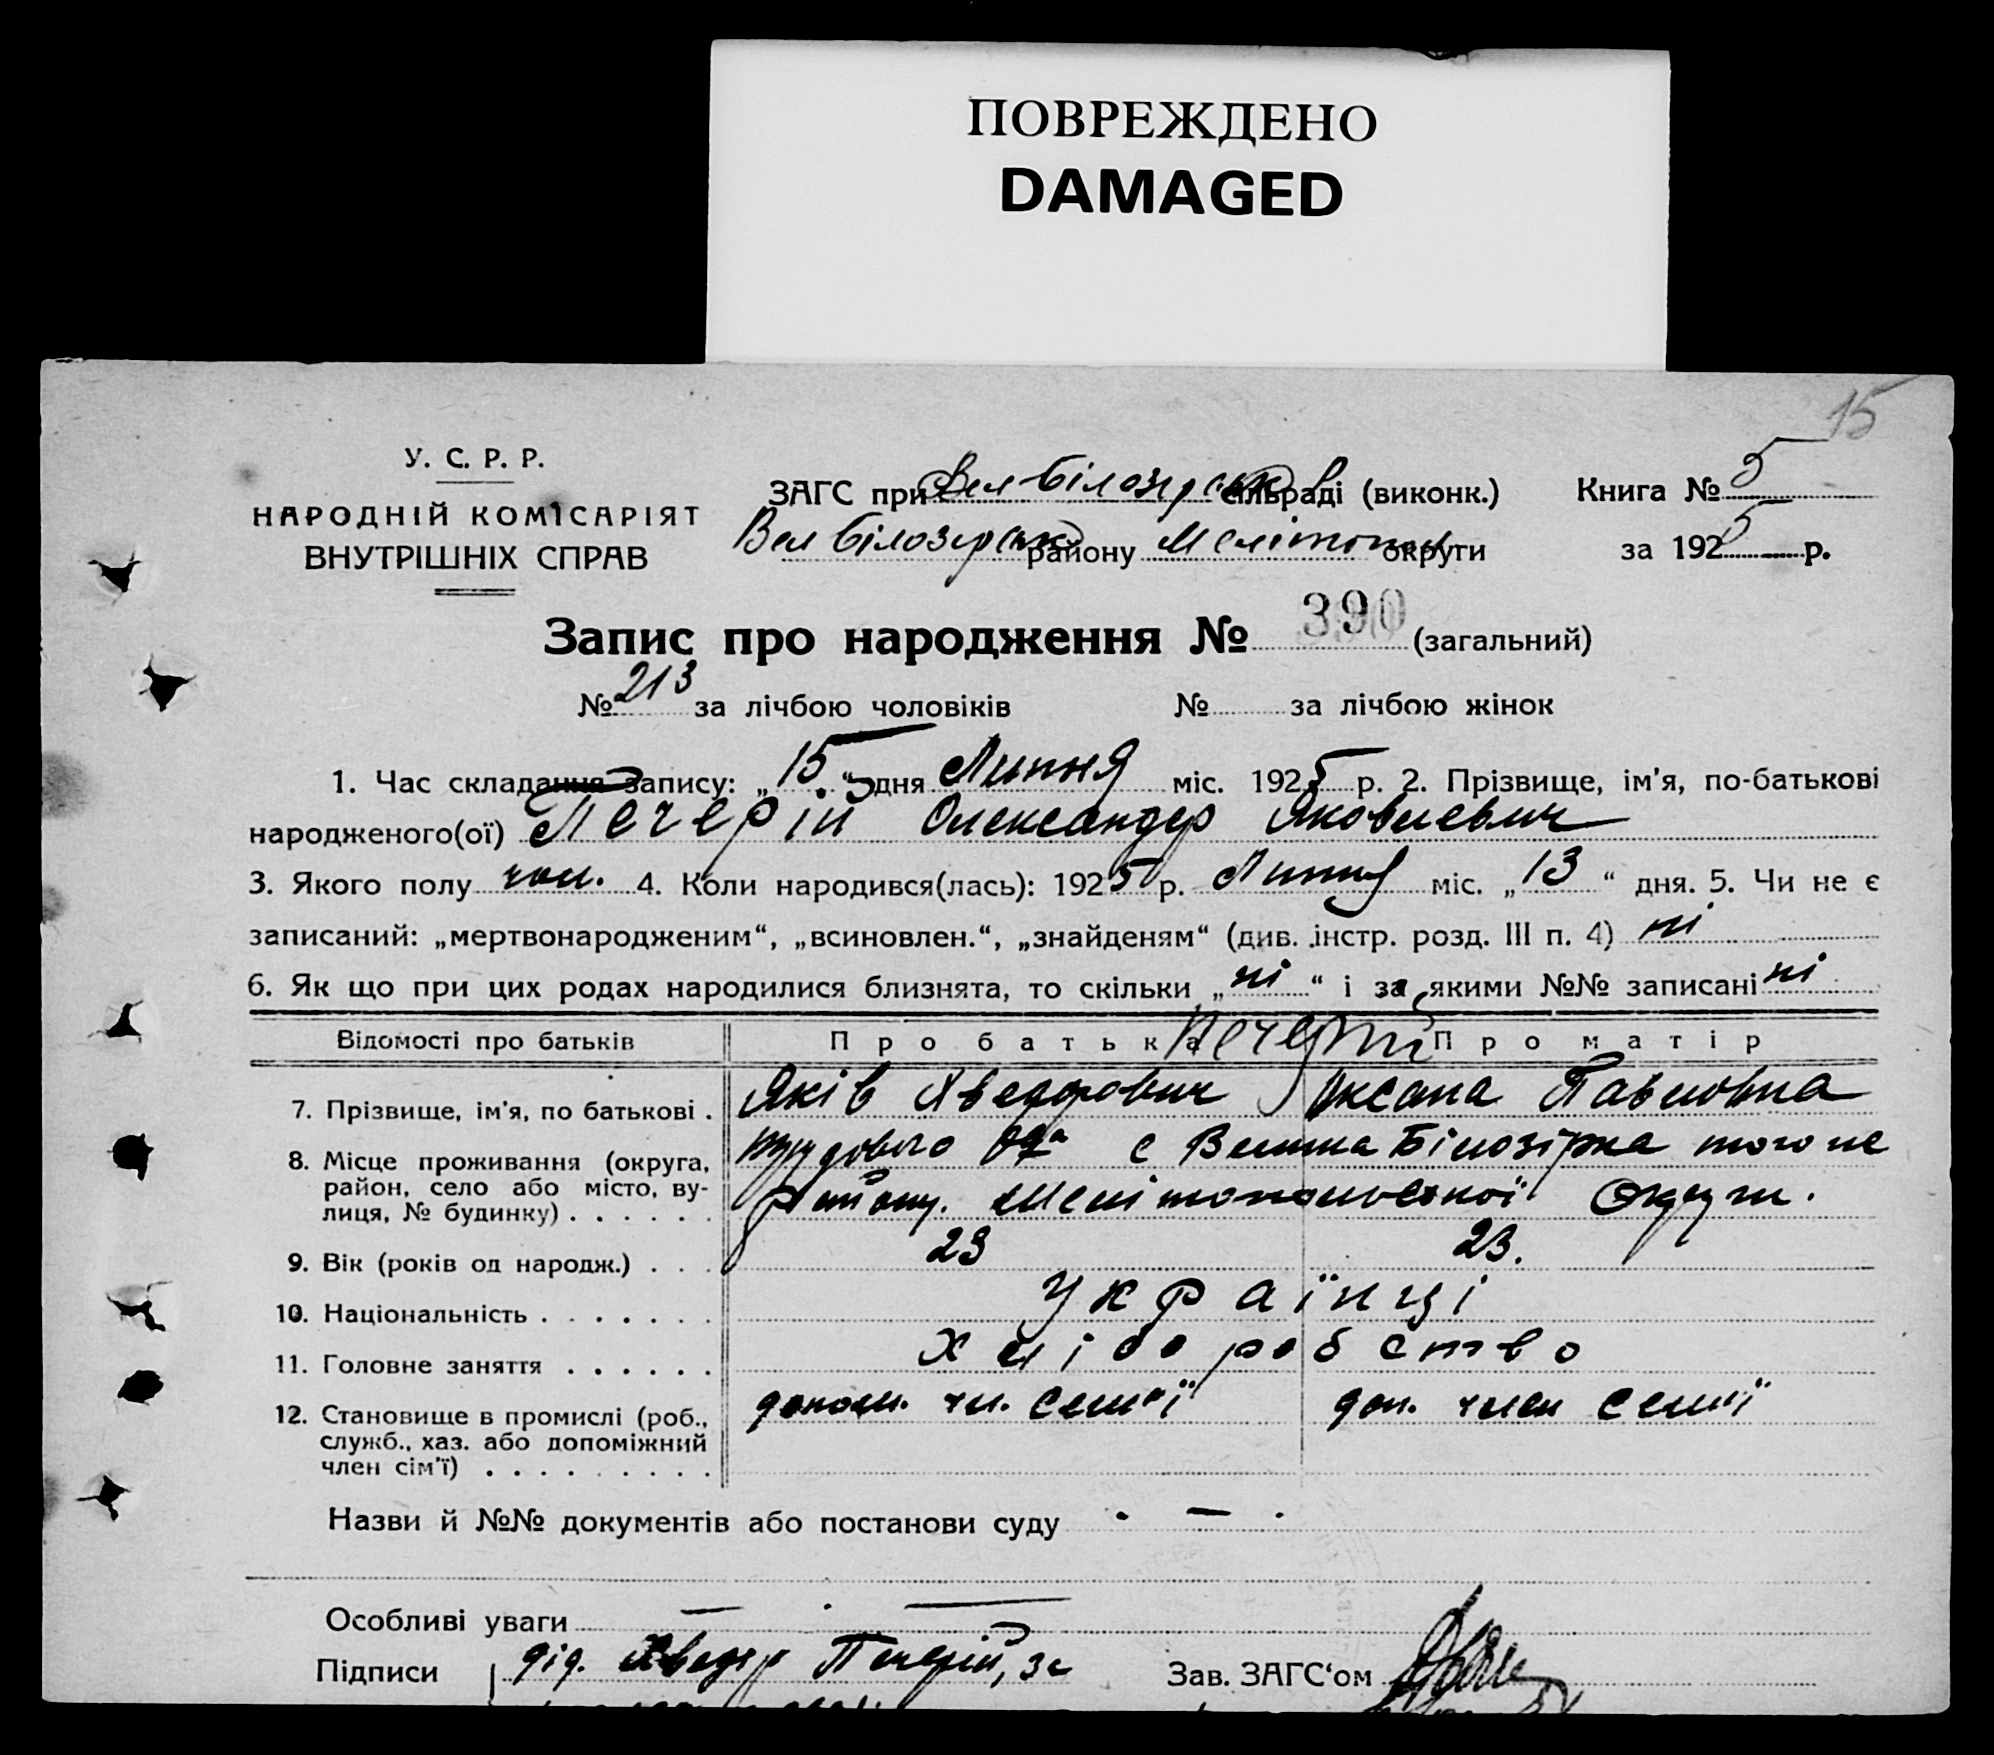 ПОВРЕЖДЕНО
DAMAGED
15
У. С. Р. Р.
НАРОДНІЙ КОМІСАРІЯТ
ВНУТРІШНІХ СПРАВ
ЗАГС при Вел Білозірськ сільраді (виконк.) Книга № 5
Вел Білозірськ району Мелітопол округи за 1925 р.
Запис про народження № 390 (загальний)
№ 213 за лічбою чоловіків № за лічбою жінок
1. Час складання запису: „15“ дня Липня міс. 1925 р. 2. Прізвище, ім'я, по-батькові
народженого(ої) Печерій Олександер Яковлевич
3. Якого полу чол. 4. Коли народився(лась): 1925 р. Липня міс. „13“ дня. 5. Чи не є
записаний: „мертвонародженим“, „всиновлен.“, „знайденям“ (див. інстр. розд. III п. 4) ні
6. Як що при цих родах народилися близнята, то скільки „ні“ і за якими №№ записані ні
Відомості про батьків Про батька Про матір
Печерії
7. Прізвище, ім'я, по батькові . Яків Хведорович Оксана Павловна
8. Місце проживання (округа, район, село або місто, вулиця, № будинку) . . . . . . с Велика Білозірка того же
району. Мелітопольської Округи.
9. Вік (років од народж.) . . . 23 23.
10. Національність . . . . . . . Українці
11. Головне заняття . . . . . . Хліборобство
12. Становище в промислі (роб., служб., хаз. або допоміжний член сім'ї) . . . . . . . . . допом. чл. семьї доп. член семьї
Назви й №№ документів або постанови суду —
Особливі уваги — —
Підписи дід. Хведір Печерій, за Зав. ЗАГС'ом